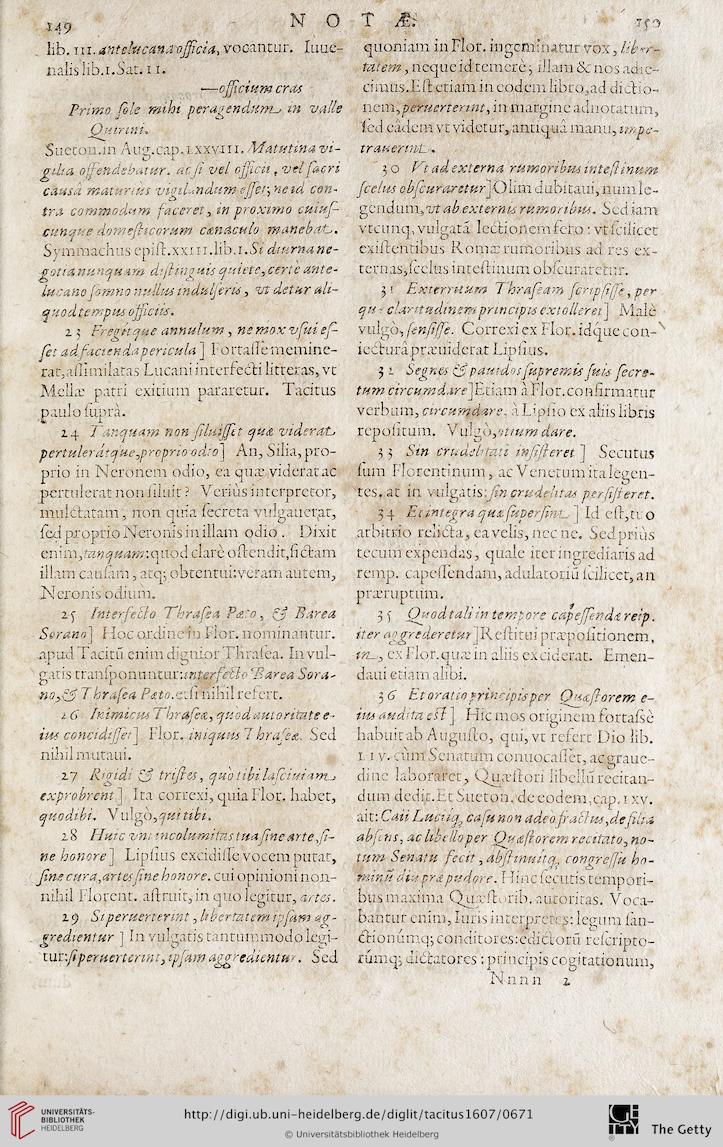 149 NOTÆ. 150
lib. III. antelucana officia, vocantur. Iuue-
nalis lib. 1. Sat. 11.
—officium cras
Primo sole mihi peragendum in valle
Quirini.
Sueton. in Aug. cap. LXXVIII. Matutina vi-
gilia offendebatur. ac si vel officii, vel sacri
causâ maturiùs vigilandum esset; ne id con-
tra commodum faceret, in proximo cuius-
cunque domesticorum cœnaculo manebat.
Symmachus epist. XXIII. lib. 1. Si diurna ne-
gotia nunquam distinguis quiete, certè ante-
lucano somno nullus indulseris, vt detur ali-
quod tempus officiis.
23 Fregitque annulum, ne mox vsui es-
set ad facienda pericula] Fortasse memine-
rat, assimilatas Lucani interfecti litteras, vt
Mellæ patri exitium pararetur. Tacitus
paulo suprà.
24 Tanquam non siluisset quæ viderat
pertuleratque, proprio odio] An, Silia, pro-
prio in Neronem odio, ea quæ viderat ac
pertulerat non siluit? Veriùs interpretor,
mulctatam, non quia secreta vulgauerat,
sed proprio Neronis in illam odio. Dixit
enim, tanquam: quod clarè ostendit, fictam
illam causam, atq; obtentui: veram autem,
Neronis odium.
25 Interfecto Thrasea Pæto, & Barea
Sorano] Hoc ordine in Flor. nominantur.
apud Tacitū enim dignior Thrasea. In vul-
gatis transponuntur: interfecto Barea Sora-
no, & Thrasea Pæto. etsi nihil refert.
26 Inimicus Thraseæ, quod autoritate e-
ius concidisset] Flor. iniquus Thraseæ. Sed
nihil mutaui.
27 Rigidi & tristes, quò tibi lasciuiam
exprobrent] Ita correxi, quia Flor. habet,
quod ibi. Vulgò, qui tibi.
28 Huic vni incolumitas tua sine arte, si-
ne honore] Lipsius excidisse vocem putat,
sine cura, artes sine honore. cui opinioni non-
nihil Florent. astruit, in quo legitur, artes.
29 Si peruerterint, libertatem ipsam ag-
gredientur] In vulgatis tantummodo legi-
tur: si peruerterint, ipsam aggredientur. Sed
quoniam in Flor. ingeminatur vox, liber-
tatem, neque id temerè; illam & nos adie-
cimus. Est etiam in eodem libro, ad dictio-
nem, peruerterint, in margine adnotatum,
sed eâdem vt videtur, antiquâ manu, impe-
trauerint.
30 Vt ad externa rumoribus intestinum
scelus obscuraretur] Olim dubitaui, num le-
gendum, vt ab externis rumoribus. Sed iam
vtcunq, vulgatâ lectionem fero: vt scilicet
existentibus Romæ rumoribus ad res ex-
ternas, scelus intestinum obscuraretur.
31 Exterritum Thraseam scripsisse, per
quæ claritudinem principis extolleret] Malè
vulgò, sensisse. Correxi ex Flor. idque con-
iecturâ præuiderat Lipsius.
32 Segnes & pauidos supremis suis secre-
tum circumdare] Etiam à Flor. confirmatur
verbum, circumdare, à Lipsio ex aliis libris
repositum. Vulgò, otium dare.
33 Sin crudelitati insisteret] Secutus
sum Florentinum, ac Venetum ita legen-
tes, at in vulgatis: sin crudelitas persisteret.
34 Et integra quæ supersint] Id est, tuo
arbitrio relicta, ea velis, nec ne. Sed priùs
tecum expendas, quale iter ingrediaris ad
remp. capessendam, adulatoriū scilicet, an
præruptum.
35 Quod tali in tempore capessendæ reip.
iter aggrederetur] Restitui præpositionem,
in, ex Flor. quæ in aliis exciderat. Emen-
daui etiam alibi.
36 Et oratio principis per Quæstorem e-
ius audita est] Hic mos originem fortassè
habuit ab Augusto, qui, vt refert Dio lib.
LIV. cùm Senatum conuocasset, ac graue-
dine laboraret, Quæstori libellū recitan-
dum dedit. Et Sueton. de eodem, cap. LXV.
ait: Caii Luciiq; casu non adeo fractus, de filia
absens, ac libello per Quæstorem recitato, no-
tum Senatu fecit, abstinuitq; congressu ho-
minū diu præ pudore. Hinc secutis tempori-
bus maxima Quæstorib. autoritas. Voca-
bantur enim, Iuris interpretes: legum san-
ctionúmq; conditores: edictorū rescripto-
rúmq; dictatores: principis cogitationum,
Nnnn 2
UNIVERSITÄTS-
BIBLIOTHEK
HEIDELBERG
http://digi.ub.uni-heidelberg.de/diglit/tacitus1607/0671
© Universitätsbibliothek Heidelberg
The Getty